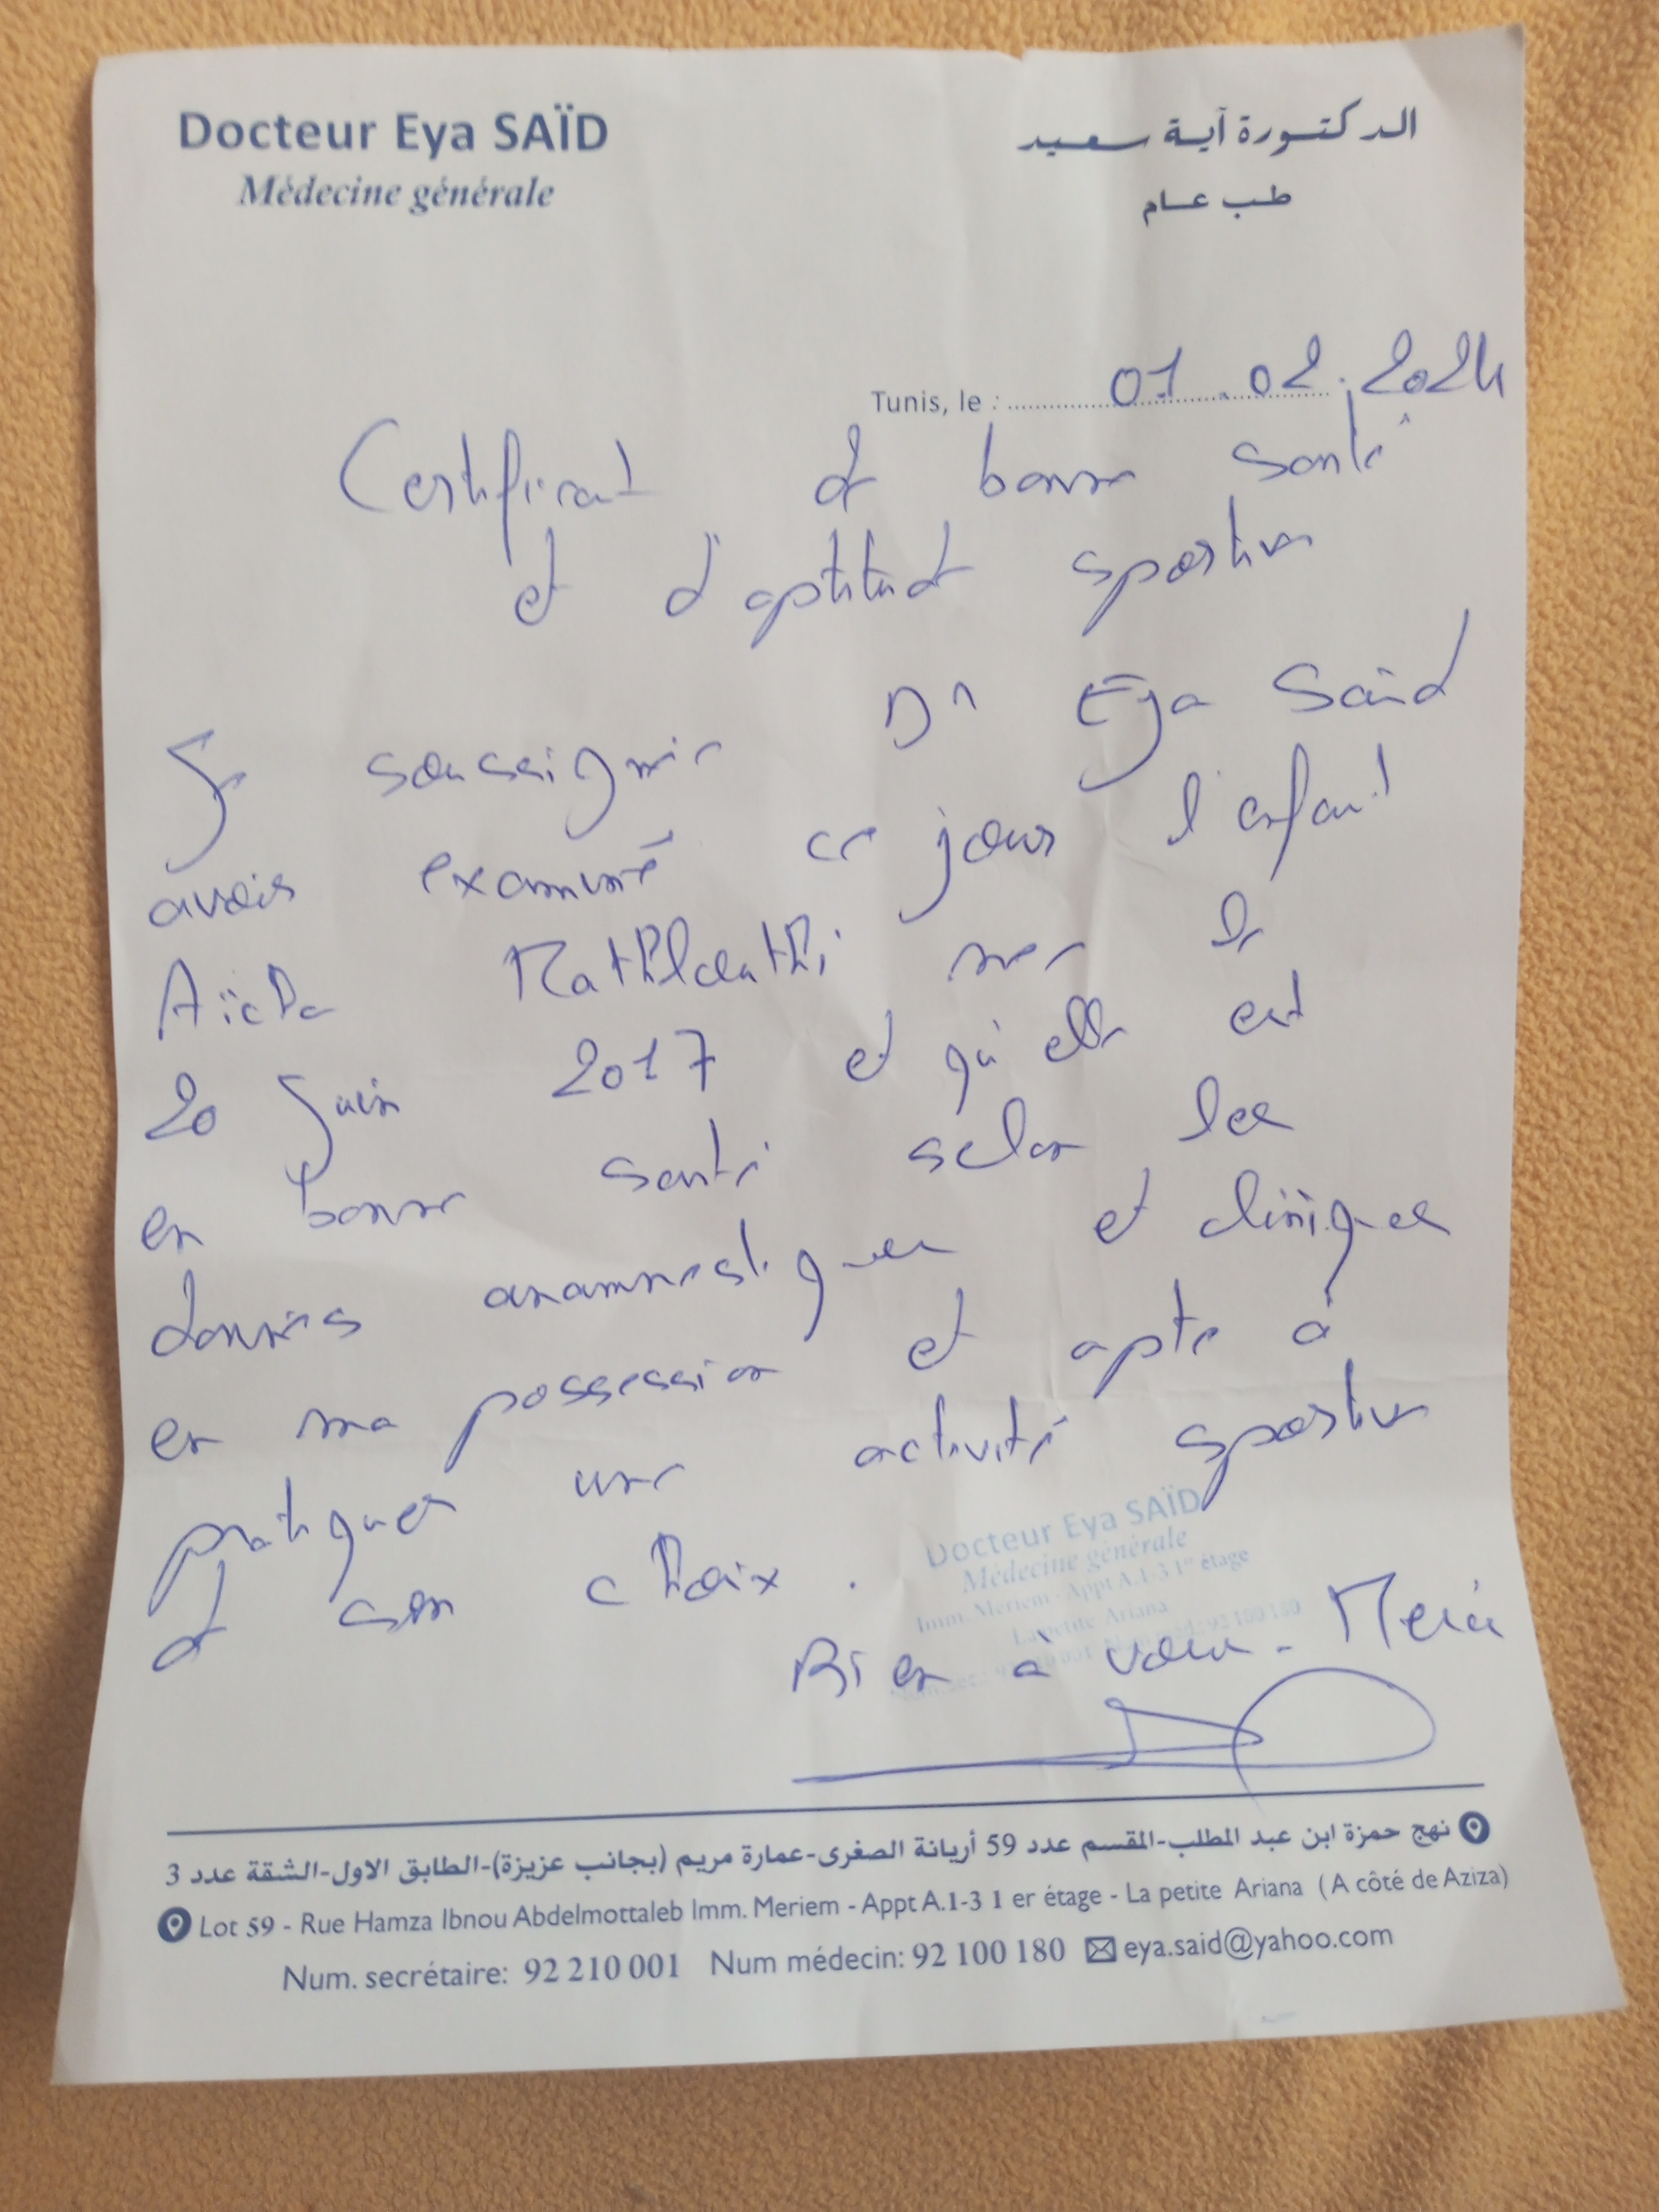 Docteur Eya SAÏD
Médecine générale
الدكتورة آية سعيد
طب عام
Tunis, le : 01.02.2024
Certificat de bonne santé
et d'aptitude sportive
Je soussignée Dr Eya Saïd
avoir examiné ce jour l'enfant
Aïcha née le
20 Juin 2017 et qu'elle est
en bonne santé selon les
données anamnestiques et cliniques
en ma possession et apte à
pratiquer une activité sportive
de son choix.
Docteur Eya SAÏD
Médecine générale
Imm. Meriem - Appt A.1-3 1er étage
La petite Ariana
Bien à vous. Merci
نهج حمزة ابن عبد المطلب-المقسم عدد 59 أريانة الصغرى-عمارة مريم (بجانب عزيزة)-الطابق الاول-الشقة عدد 3
Lot 59 - Rue Hamza Ibnou Abdelmottaleb Imm. Meriem - Appt A.1-3 1 er étage - La petite Ariana (A côté de Aziza)
Num. secrétaire: 92 210 001 Num médecin: 92 100 180 eya.said@yahoo.com